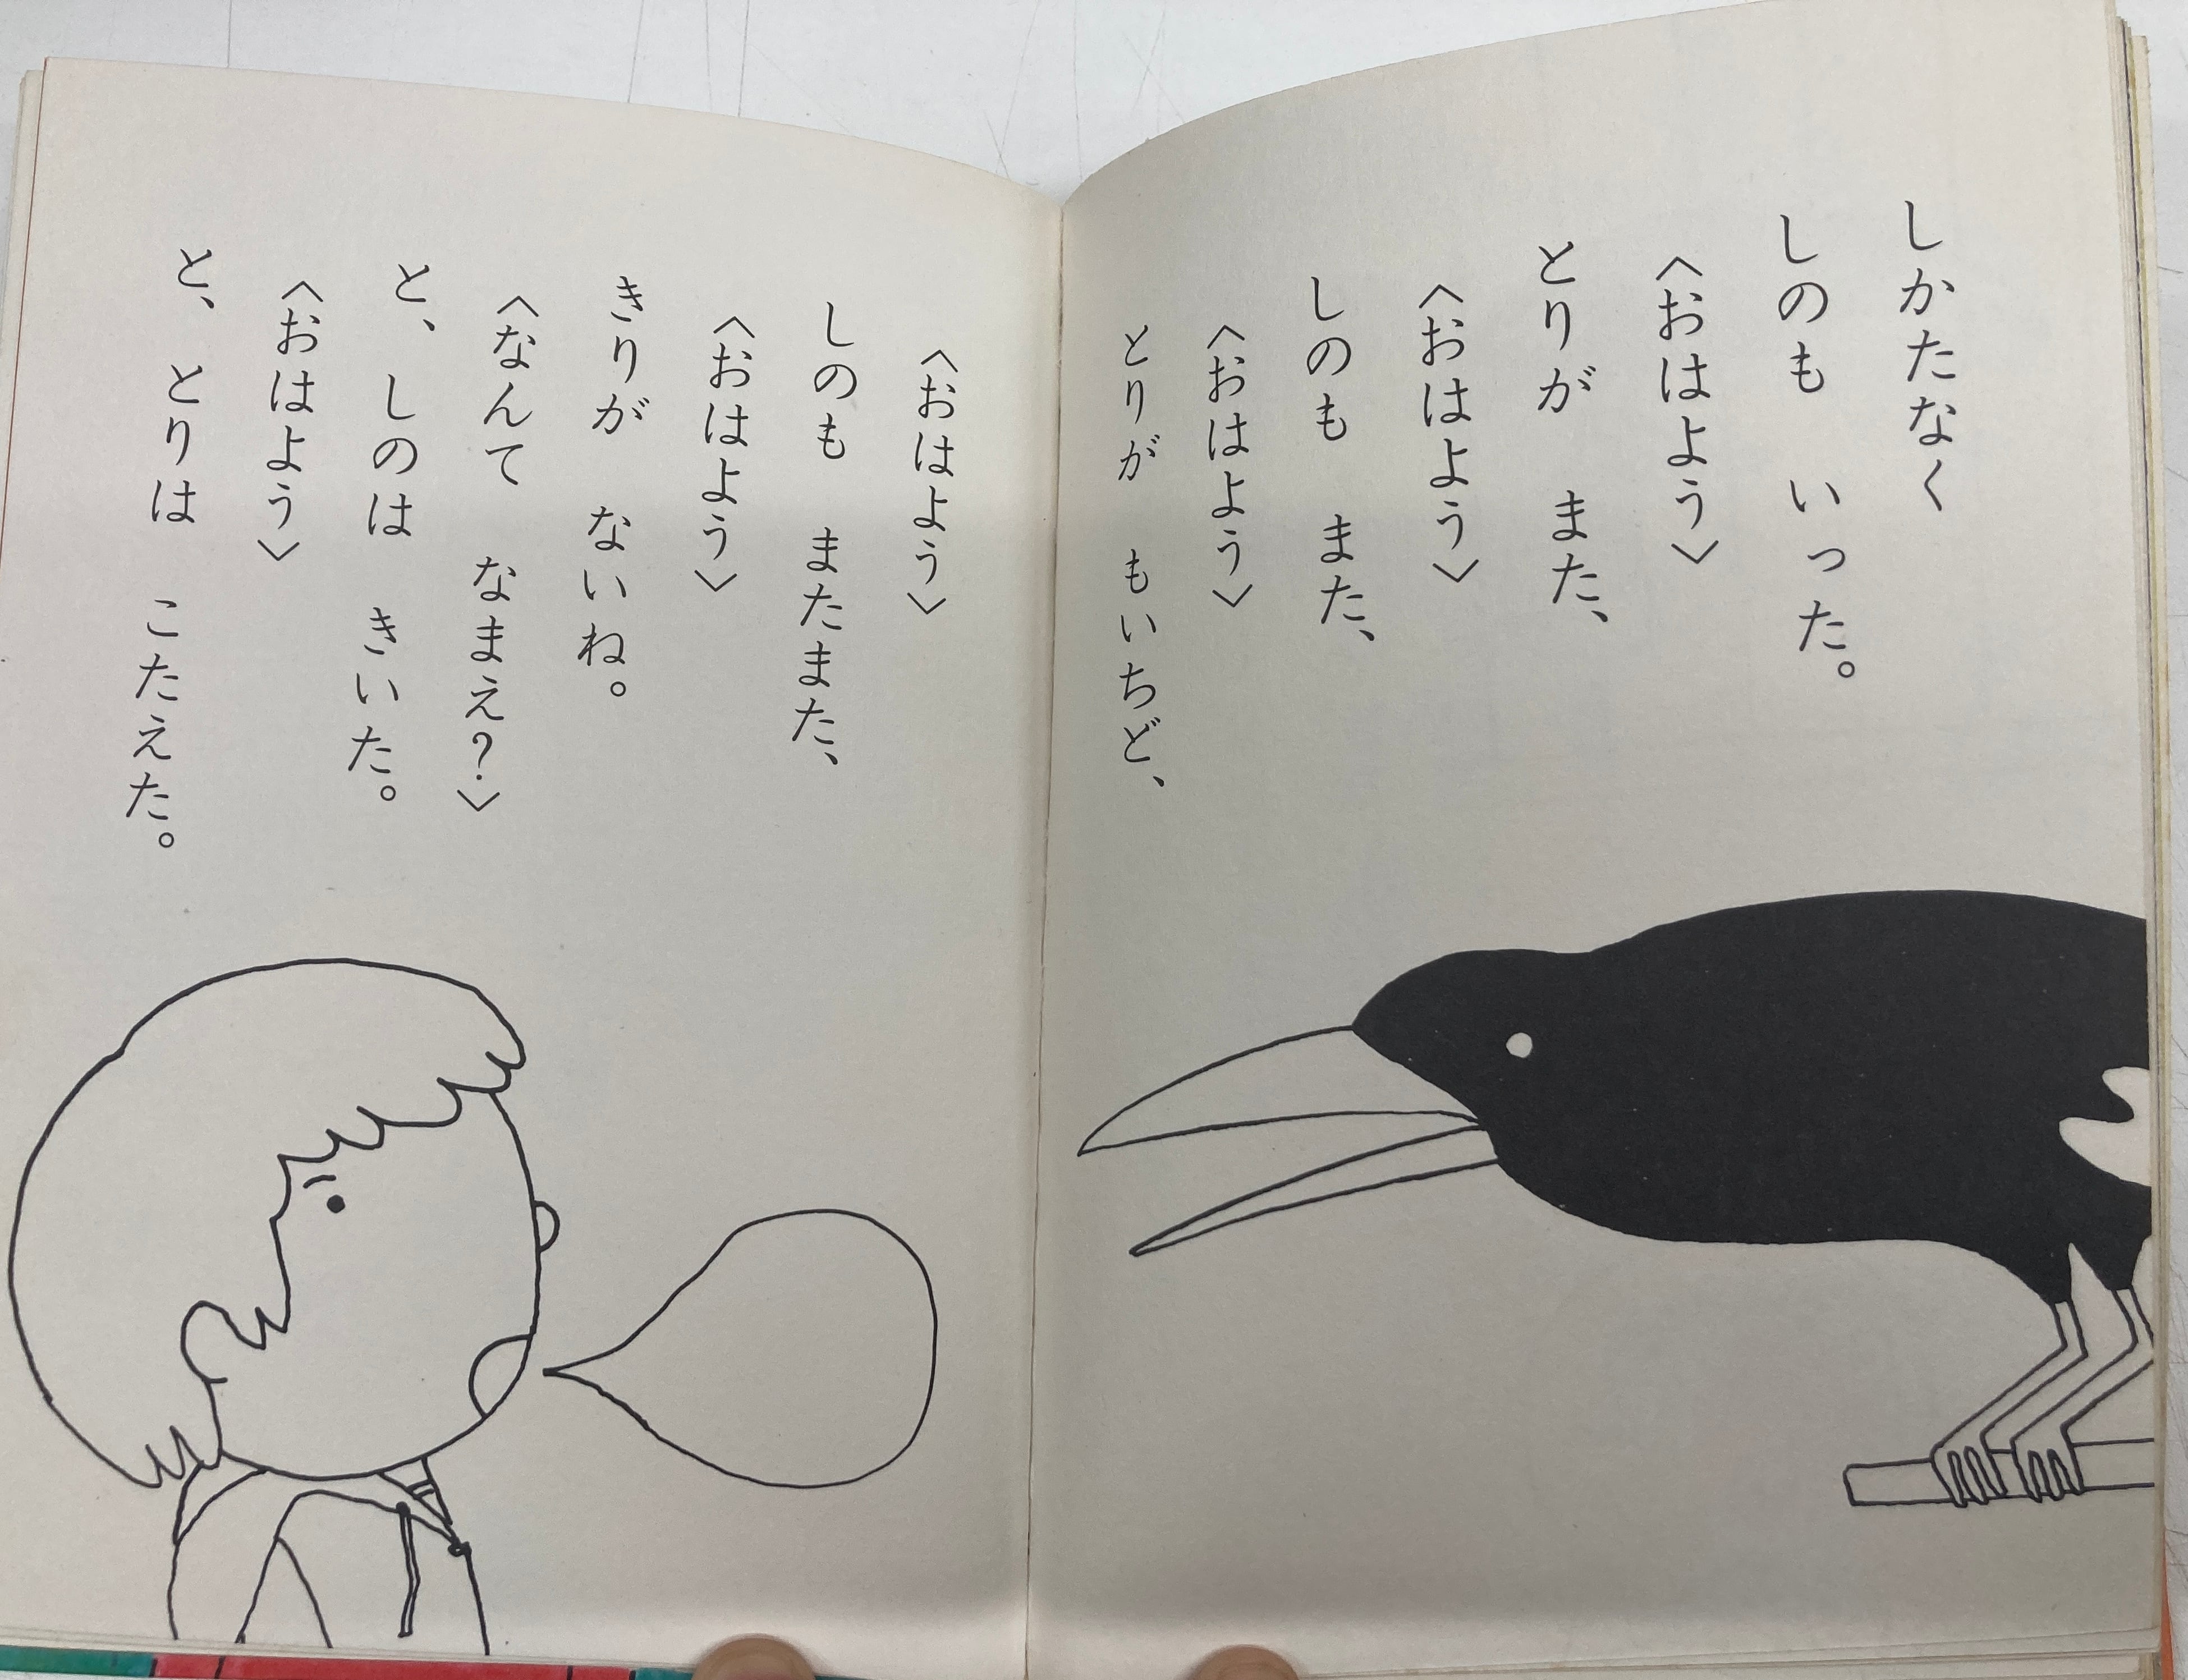 しかたなく
しのも　いった。
〈おはよう〉
とりが　また、
〈おはよう〉
しのも　また、
〈おはよう〉
とりが　もいちど、
〈おはよう〉
しのも　またまた、
〈おはよう〉
きりが　ないね。
〈なんて　なまえ？〉
と、しのは　きいた。
〈おはよう〉
と、とりは　こたえた。